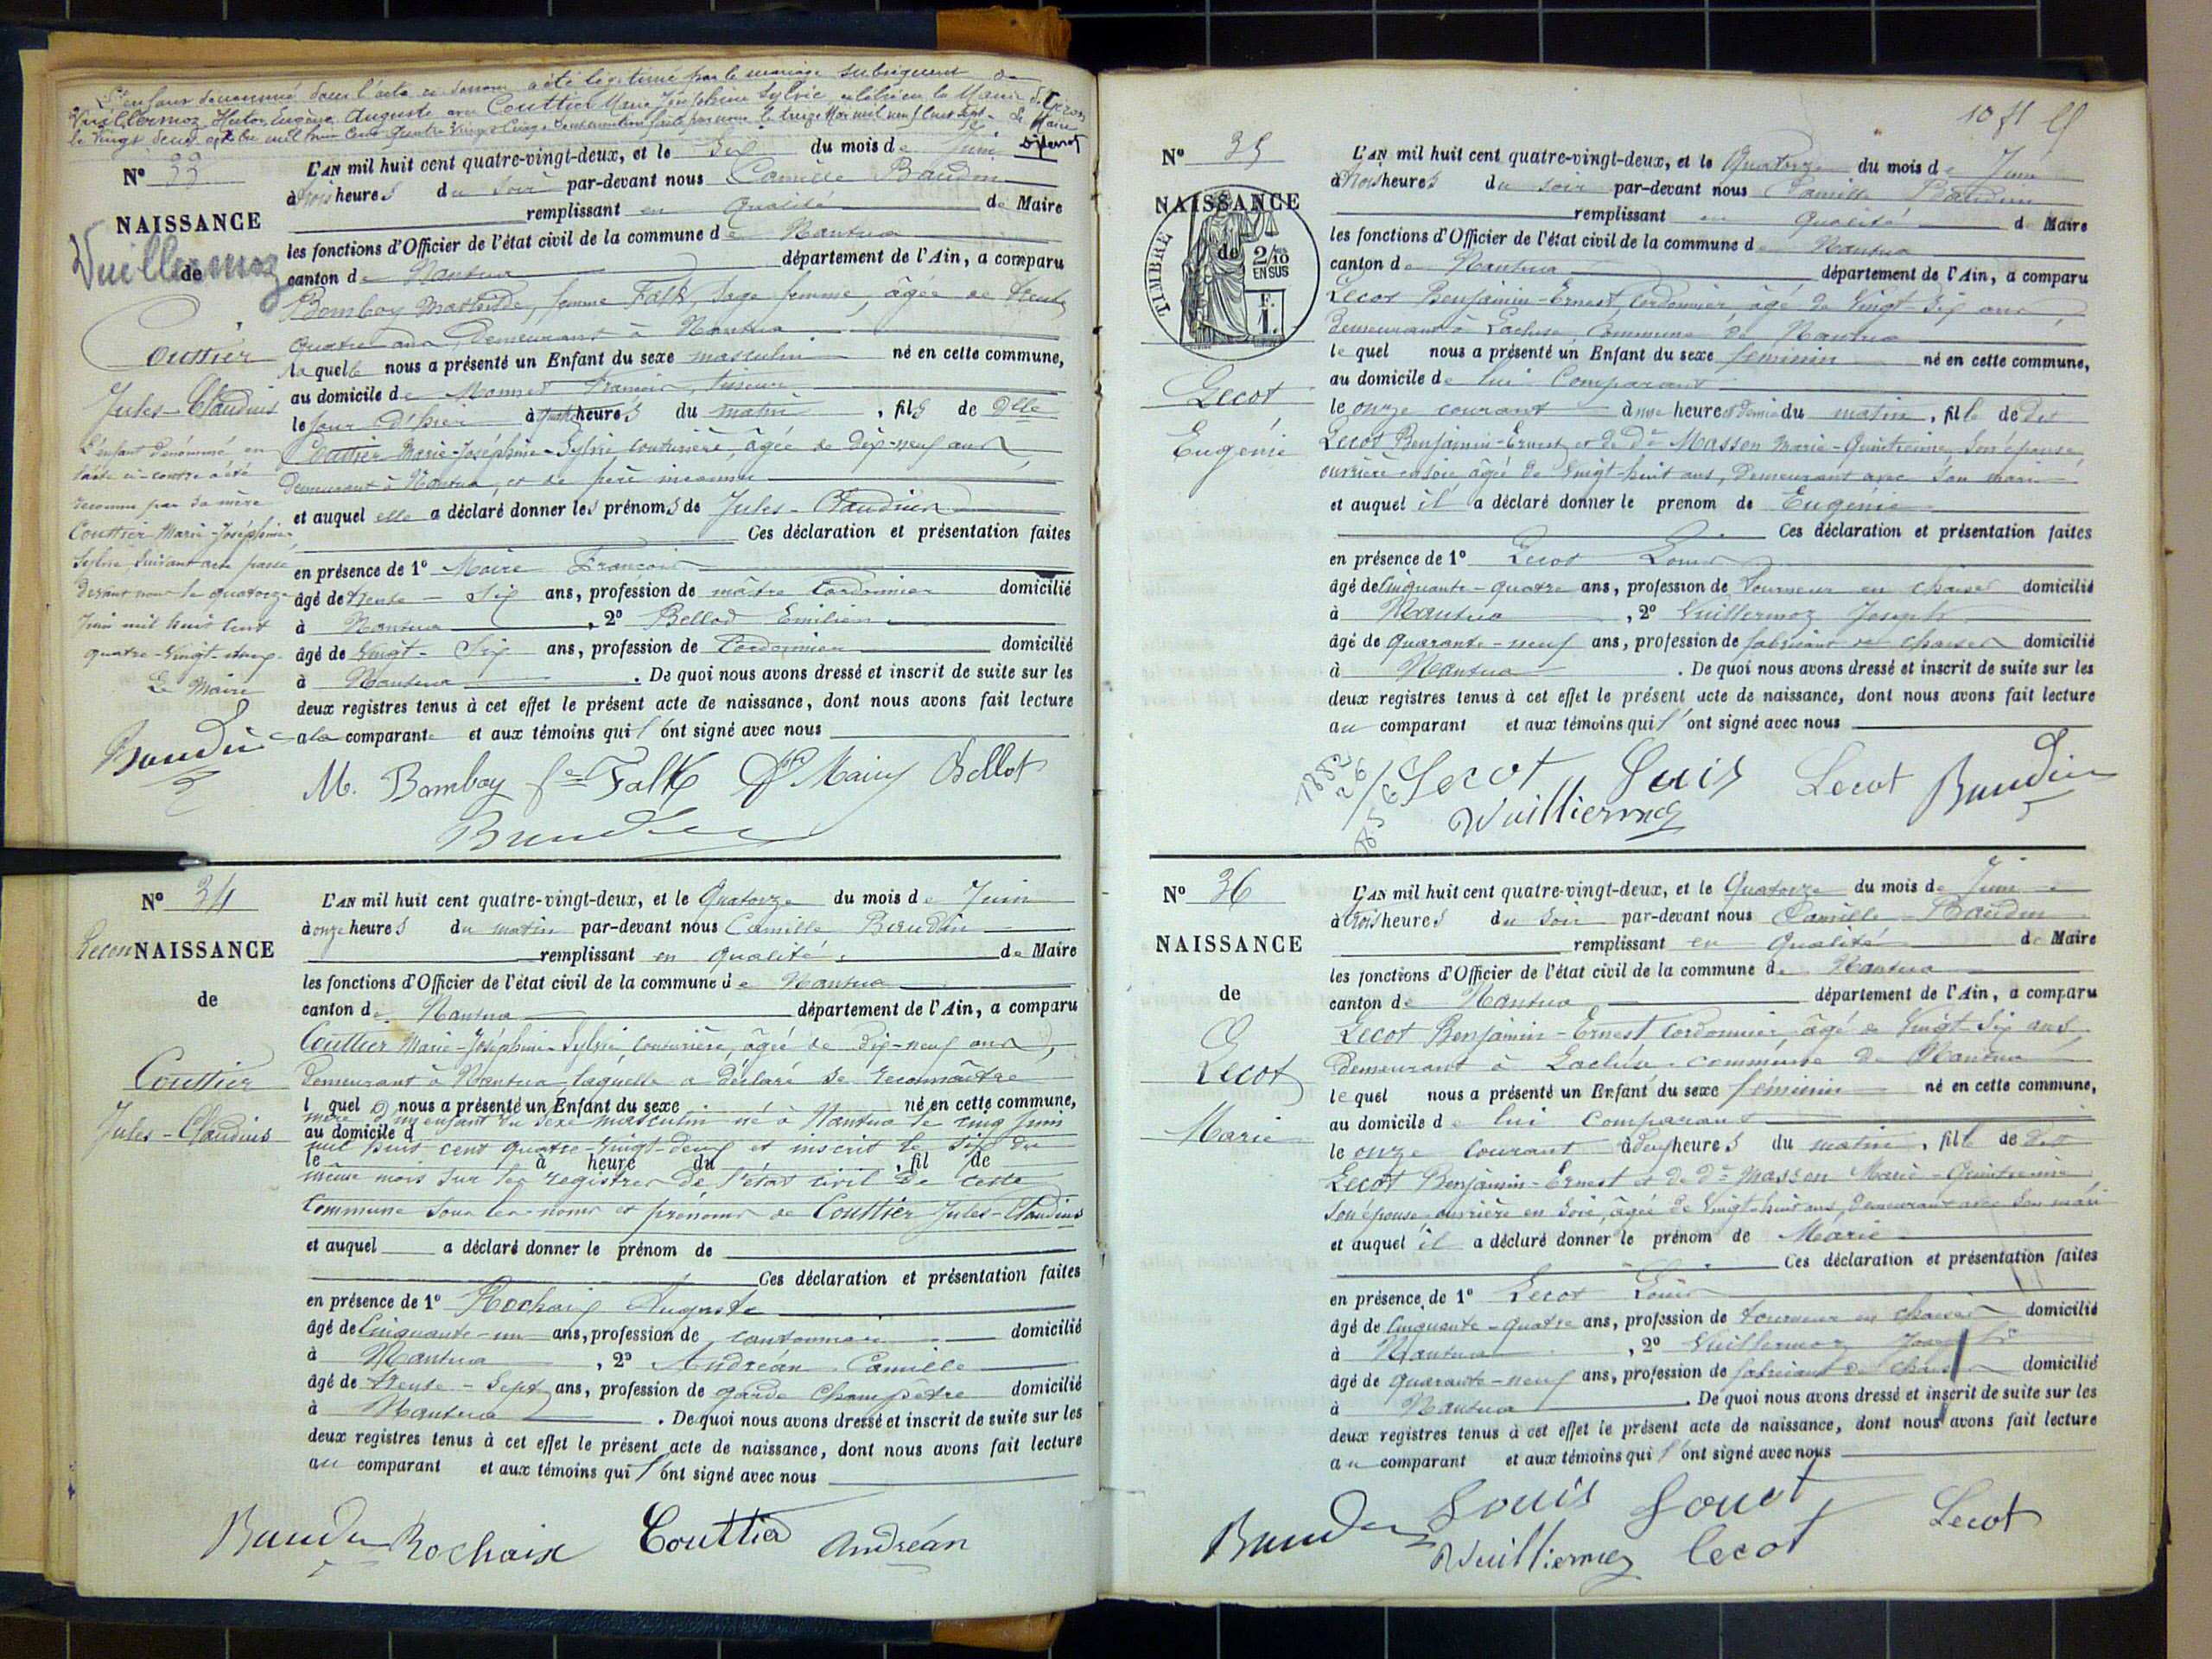 L'enfant dénommé dans l'acte ci-dessous a été légitimé par le mariage subséquent de
Vuillermoz Hector Eugène Auguste avec Couttier Marie Joséphine Sylvie célébré en la Mairie de
le vingt deux octobre mil huit cent quatre vingt cinq le treize Mai mil neuf cent sept. Le Maire
N° 33
NAISSANCE
de
Vuillermoz
Couttier
Jules-Claudius
L'enfant dénommé en
l'acte ci-contre a été
reconnu par sa mère
Couttier Marie-Joséphine
Sylvie suivant acte passé
devant nous le quatorze
Juin mil huit cent
quatre-vingt-deux.
Le Maire
Baudin
L'AN mil huit cent quatre-vingt-deux, et le Six du mois de Juin
à trois heures du soir par-devant nous Camille Baudin
remplissant en qualité de Maire
les fonctions d'Officier de l'état civil de la commune de Nantua
canton de Nantua département de l'Ain, a comparu
Bomboy Mathilde, femme Falk, Sage femme, âgée de trente
quatre ans, demeurant à Nantua
laquelle nous a présenté un Enfant du sexe masculin né en cette commune,
au domicile de Monnet François, tisseur
le jour d'hier à heures du matin, fils de Dlle
Couttier Marie-Joséphine-Sylvie, couturière, âgée de dix-neuf ans,
demeurant à Nantua, et de père inconnu
et auquel elle a déclaré donner les prénoms de Jules-Claudius
Ces déclaration et présentation faites
en présence de 1° Maire François
âgé de trente-six ans, profession de maître Cordonnier domicilié
à Nantua, 2° Bellod Emilien
âgé de vingt-six ans, profession de Cordonnier domicilié
à Nantua. De quoi nous avons dressé et inscrit de suite sur les
deux registres tenus à cet effet le présent acte de naissance, dont nous avons fait lecture
à la comparante et aux témoins qui l'ont signé avec nous
M. Bomboy fe Falk Bellot
Baudin
N° 34
Recon NAISSANCE
de
Couttier
Jules-Claudius
L'AN mil huit cent quatre-vingt-deux, et le Quatorze du mois de Juin
à onze heures du matin par-devant nous Camille Baudin
remplissant en qualité de Maire
les fonctions d'Officier de l'état civil de la commune de Nantua
canton de Nantua département de l'Ain, a comparu
Couttier Marie-Joséphine-Sylvie, couturière, âgée de dix-neuf ans,
demeurant à Nantua, laquelle a déclaré se reconnaître
l quel nous a présenté un Enfant du sexe né en cette commune,
mère d'un enfant du sexe masculin né à Nantua le cinq juin
au domicile d
mil huit cent quatre-vingt-deux et inscrit le six du
le à heure du , fil de
même mois sur les registres de l'état civil de cette
Commune sous les noms et prénoms de Couttier Jules-Claudius
et auquel a déclaré donner le prénom de
Ces déclaration et présentation faites
en présence de 1° Rochaix Auguste
âgé de Cinquante-un ans, profession de cantonnier domicilié
à Nantua, 2° Andréan Camille
âgé de trente-sept ans, profession de garde champêtre domicilié
à Nantua. De quoi nous avons dressé et inscrit de suite sur les
deux registres tenus à cet effet le présent acte de naissance, dont nous avons fait lecture
au comparant et aux témoins qui l'ont signé avec nous
Baudin Rochaix Couttier Andréan
N° 35
NAISSANCE
de
TIMBRE
2/10
EN SUS
F.
1.
Lecot
Eugénie
L'AN mil huit cent quatre-vingt-deux, et le Quatorze du mois de Juin
à trois heures du soir par-devant nous Camille Baudin
remplissant en qualité de Maire
les fonctions d'Officier de l'état civil de la commune de Nantua
canton de Nantua département de l'Ain, a comparu
Lecot Benjamin-Ernest, Cordonnier, âgé de vingt-six ans,
demeurant à Lacluse, Commune de Nantua
lequel nous a présenté un Enfant du sexe féminin né en cette commune,
au domicile de lui Comparant
le onze courant à une heure et demie du matin, fille de dit
Lecot Benjamin-Ernest et de De Masson Marie-Quintienne, son épouse,
ouvrière en soie, âgée de vingt-huit ans, demeurant avec son mari
et auquel il a déclaré donner le prénom de Eugénie
Ces déclaration et présentation faites
en présence de 1° Lecot Louis
âgé de Cinquante-quatre ans, profession de Tourneur en chaises domicilié
à Nantua, 2° Vuillermoz Joseph
âgé de quarante-neuf ans, profession de fabricant de chaises domicilié
à Nantua. De quoi nous avons dressé et inscrit de suite sur les
deux registres tenus à cet effet le présent acte de naissance, dont nous avons fait lecture
au comparant et aux témoins qui l'ont signé avec nous
1882
26
1856
Lecot Louis Lecot Baudin
Vuilliermoz
N° 36
NAISSANCE
de
Lecot
Marie
L'AN mil huit cent quatre-vingt-deux, et le Quatorze du mois de Juin
à trois heures du soir par-devant nous Camille Baudin
remplissant en qualité de Maire
les fonctions d'Officier de l'état civil de la commune de Nantua
canton de Nantua département de l'Ain, a comparu
Lecot Benjamin-Ernest, Cordonnier, âgé de vingt-six ans
demeurant à Lacluse, commune de Nantua
lequel nous a présenté un Enfant du sexe féminin né en cette commune,
au domicile de lui Comparant
le onze courant à deux heures du matin, fille de dit
Lecot Benjamin-Ernest et de De Masson Marie-Quintienne
son épouse, ouvrière en soie, âgée de vingt-huit ans, demeurant avec son mari
et auquel il a déclaré donner le prénom de Marie
Ces déclaration et présentation faites
en présence de 1° Lecot Louis
âgé de Cinquante-quatre ans, profession de tourneur en chaises domicilié
à Nantua, 2° Vuillermoz Joseph
âgé de quarante-neuf ans, profession de fabricant de chaises domicilié
à Nantua. De quoi nous avons dressé et inscrit de suite sur les
deux registres tenus à cet effet le présent acte de naissance, dont nous avons fait lecture
au comparant et aux témoins qui l'ont signé avec nous
Baudin Louis Lecot
Vuilliermoz Lecot